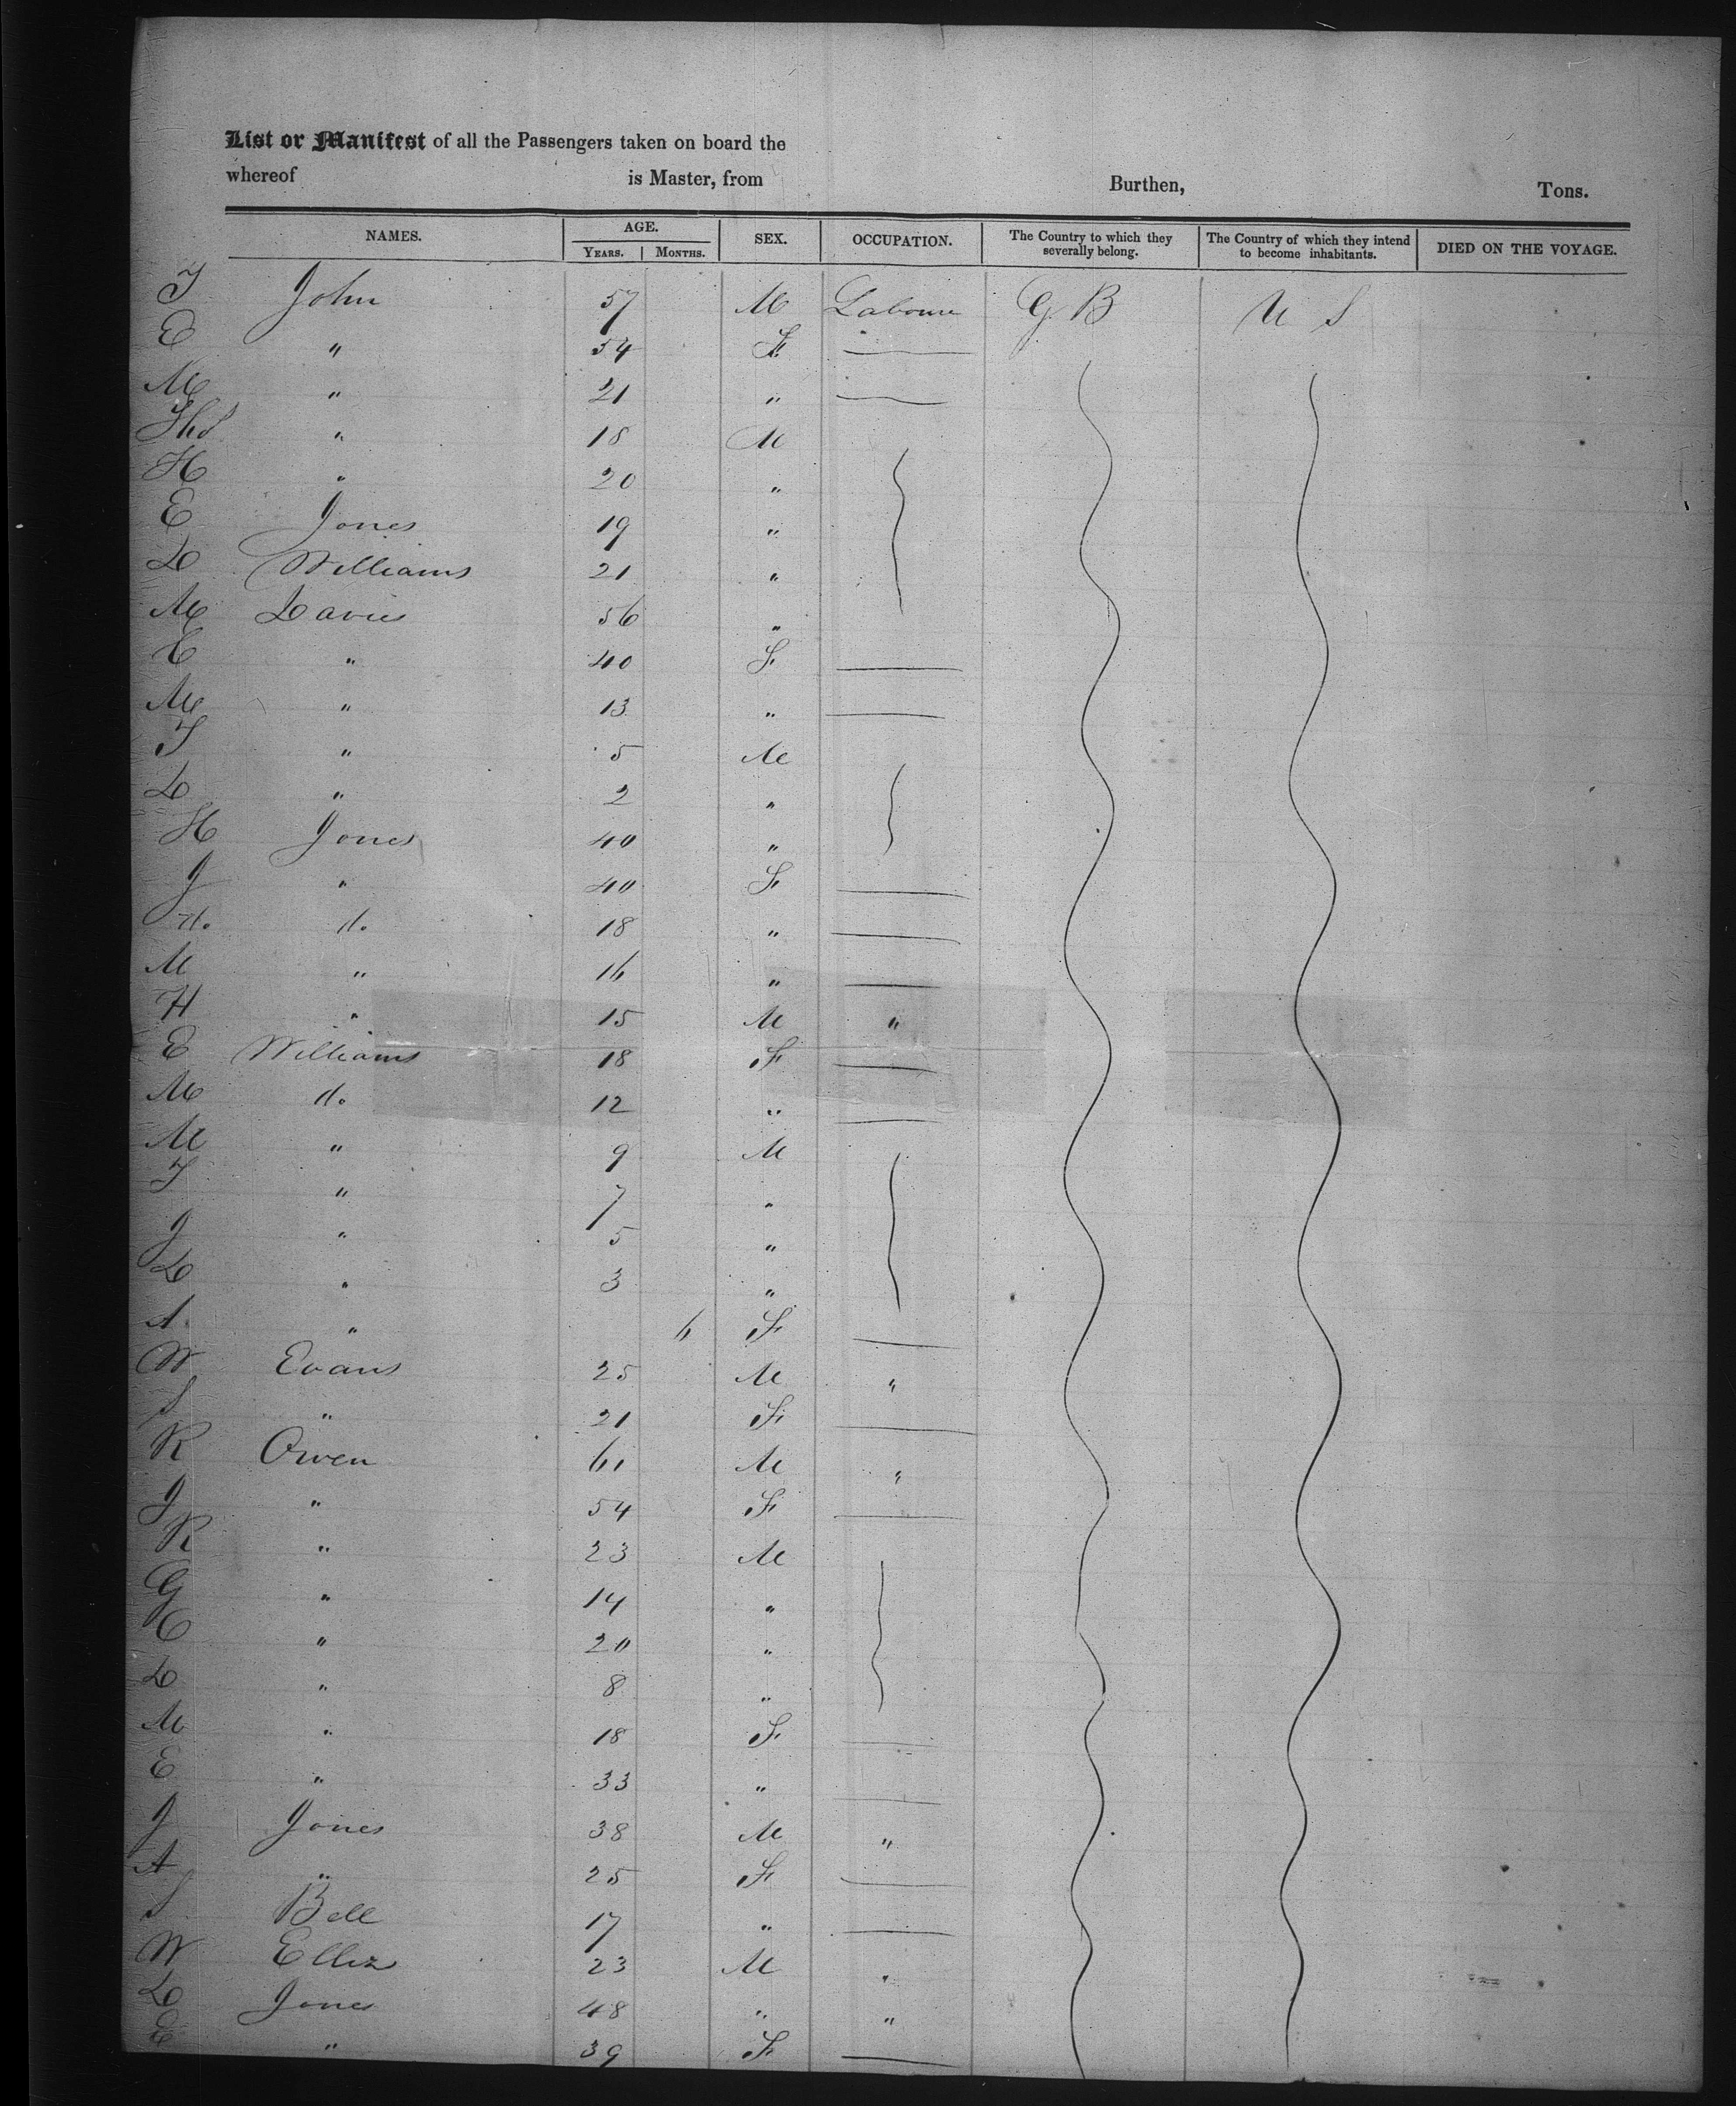 List or Manifest of all the Passengers taken on board the
whereof is Master, from Burthen, Tons.
NAMES. AGE. YEARS. MONTHS. SEX. OCCUPATION. The Country to which they severally belong. The Country of which they intend to become inhabitants. DIED ON THE VOYAGE.
T John 57 M Laboure G B U S
E " 54 F
M " 21 "
Thos " 18 M
H " 20 "
E Jones 19 "
D Williams 21 "
M Davies 56 "
E " 40 F
M " 13 "
T " 5 M
D " 2 "
H Jones 40 "
J " 40 F
do do 18 "
M " 16 "
H " 15 M "
E Williams 18 F
M do 12 "
M " 9 M
T " 7 "
J " 5 "
D " 3 "
A " 6 F
W Evans 25 M "
S " 21 F
R Owen 61 M "
J " 54 F
R " 23 M
G " 14 "
C " 20 "
D " 8 "
M " 18 F
E " 33 "
J Jones 38 M "
A " 25 F
S Bell 17 "
W Elliz 23 M "
D Jones 48 " "
E " 39 F